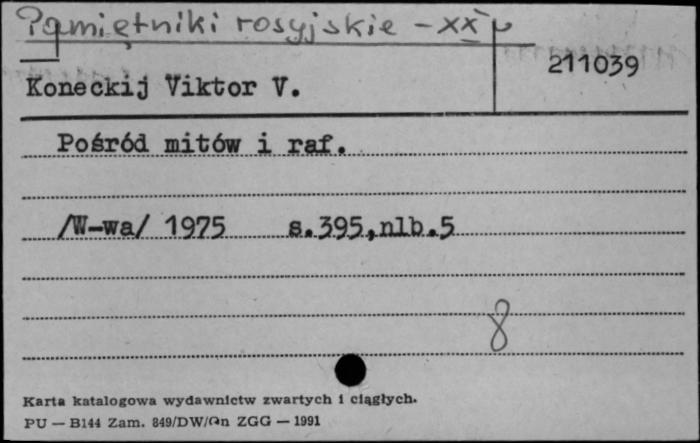 Pamiętniki rosyjskie - XX w
211039
Koneckij Viktor V.
Pośród mitów i raf.
/W-wa/ 1975 s.395,nlb.5
8
Karta katalogowa wydawnictw zwartych i ciągłych.
PU — B144 Zam. 849/DW/Gn ZGG — 1991